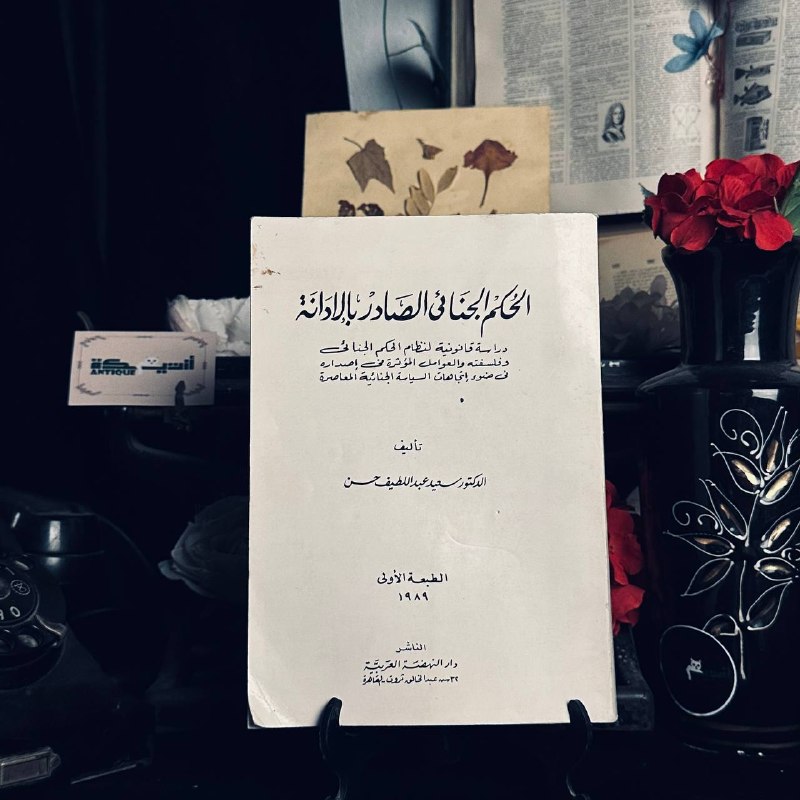 الحُكم الجنَائى الصَادرْ بالإدَانَة
دراسة قانونية لنظام الحكم الجنائى
وفلسفته والعوامل المؤثرة فى إصداره
فى ضوء إتجاهات السياسة الجنائية المعاصرة
تأليف
الدكتور سعيد عبد اللطيف حسن
الطبعة الأولى
١٩٨٩
الناشر
دار النهضة العربيّة
٣٢ ش عبد الخالق ثروت بالقاهرة
أنتيكة
ANTIQUE